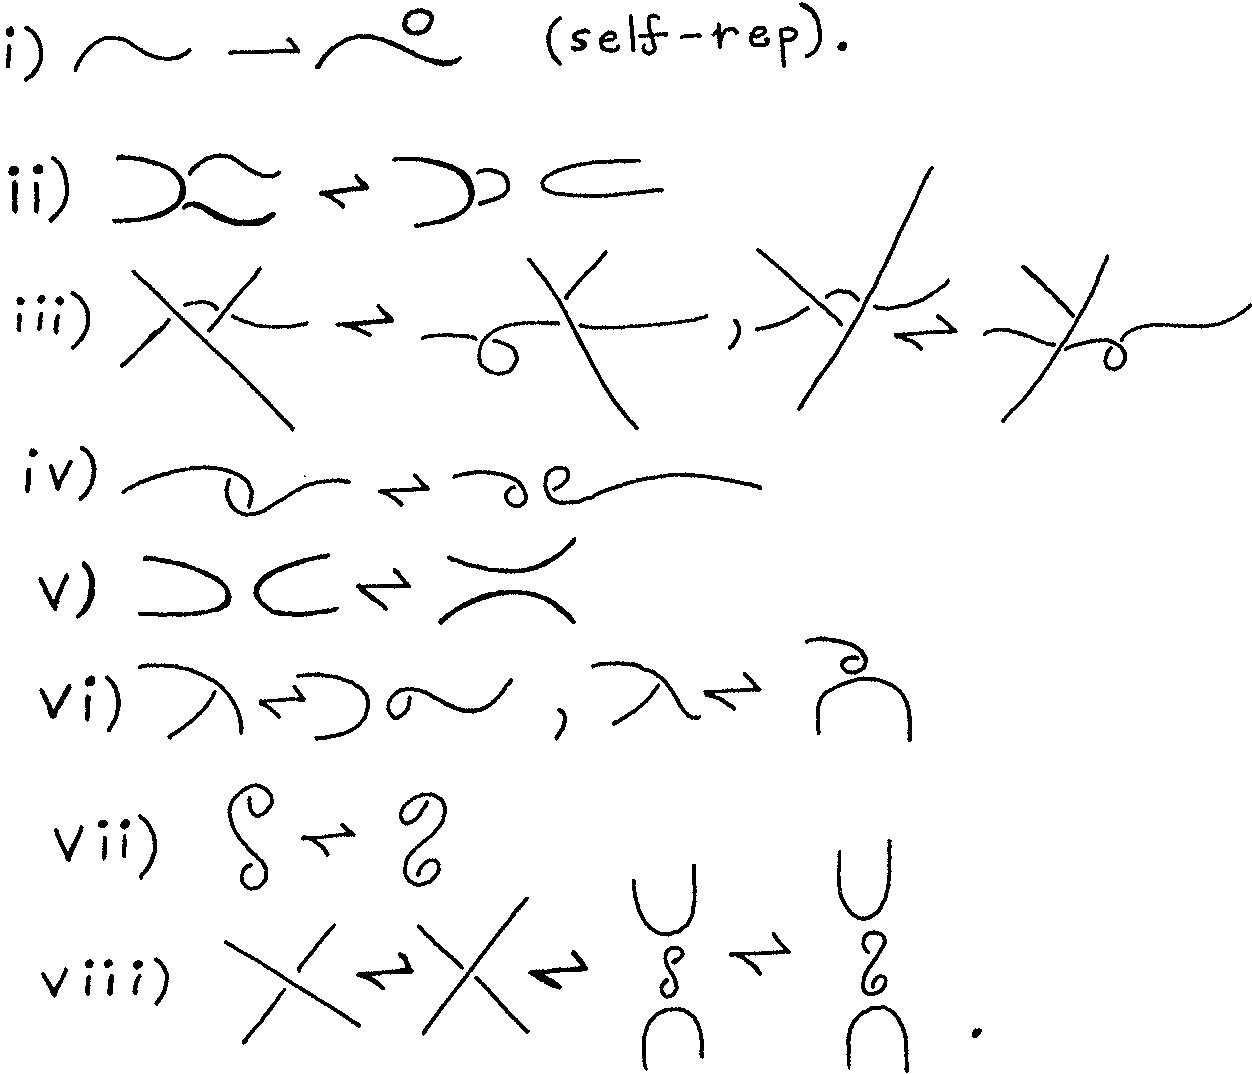 i) (self-rep).
ii)
iii) ,
iv)
v)
vi) ,
vii)
viii) .